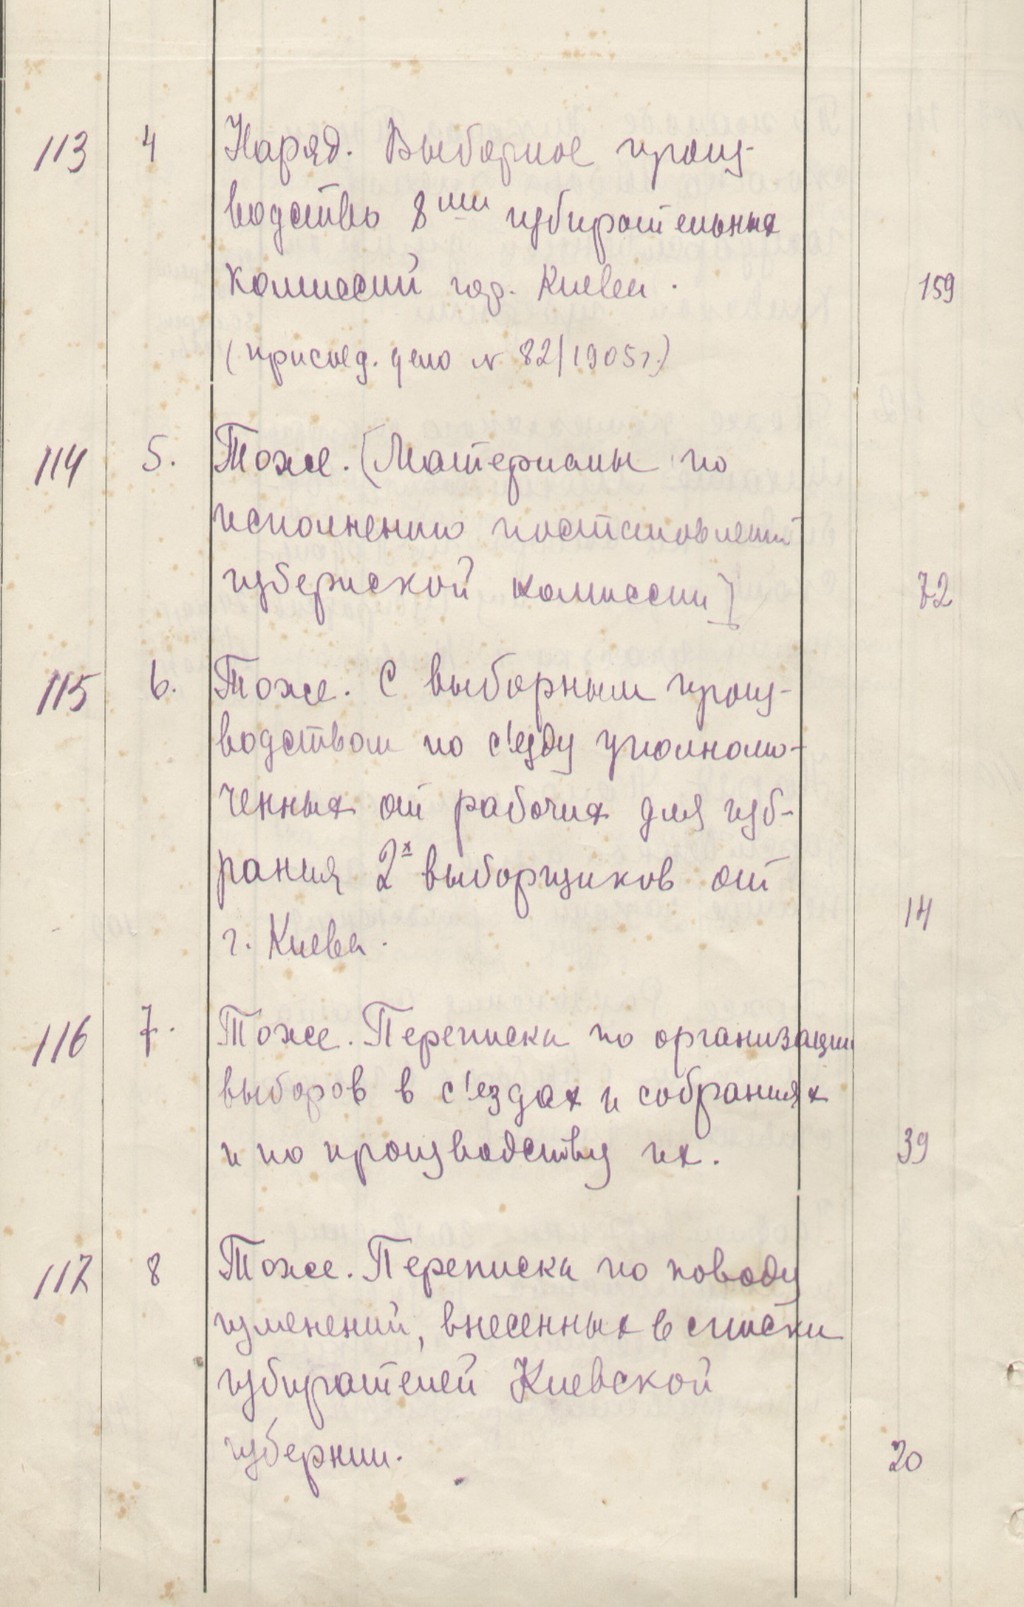 113 4 Наряд. Выборное произ-
водство 8ми избирательных
комиссий гор. Киева. 159
(присоед. дело № 82/1905 г.)
114 5. Тоже. (Материалы по
исполнению постановлений
губернской комиссии) 72
115 6. Тоже. С выборным произ-
водством по с'езду уполномо-
ченных от рабочих для изб-
рания 2х выборщиков от
г. Киева. 14
116 7. Тоже. Переписка по организации
выборов в с'ездах и собраниях
и по производству их. 39
117 8 Тоже. Переписка по поводу
изменений, внесенных в списки
избирателей Киевской
губернии. 20